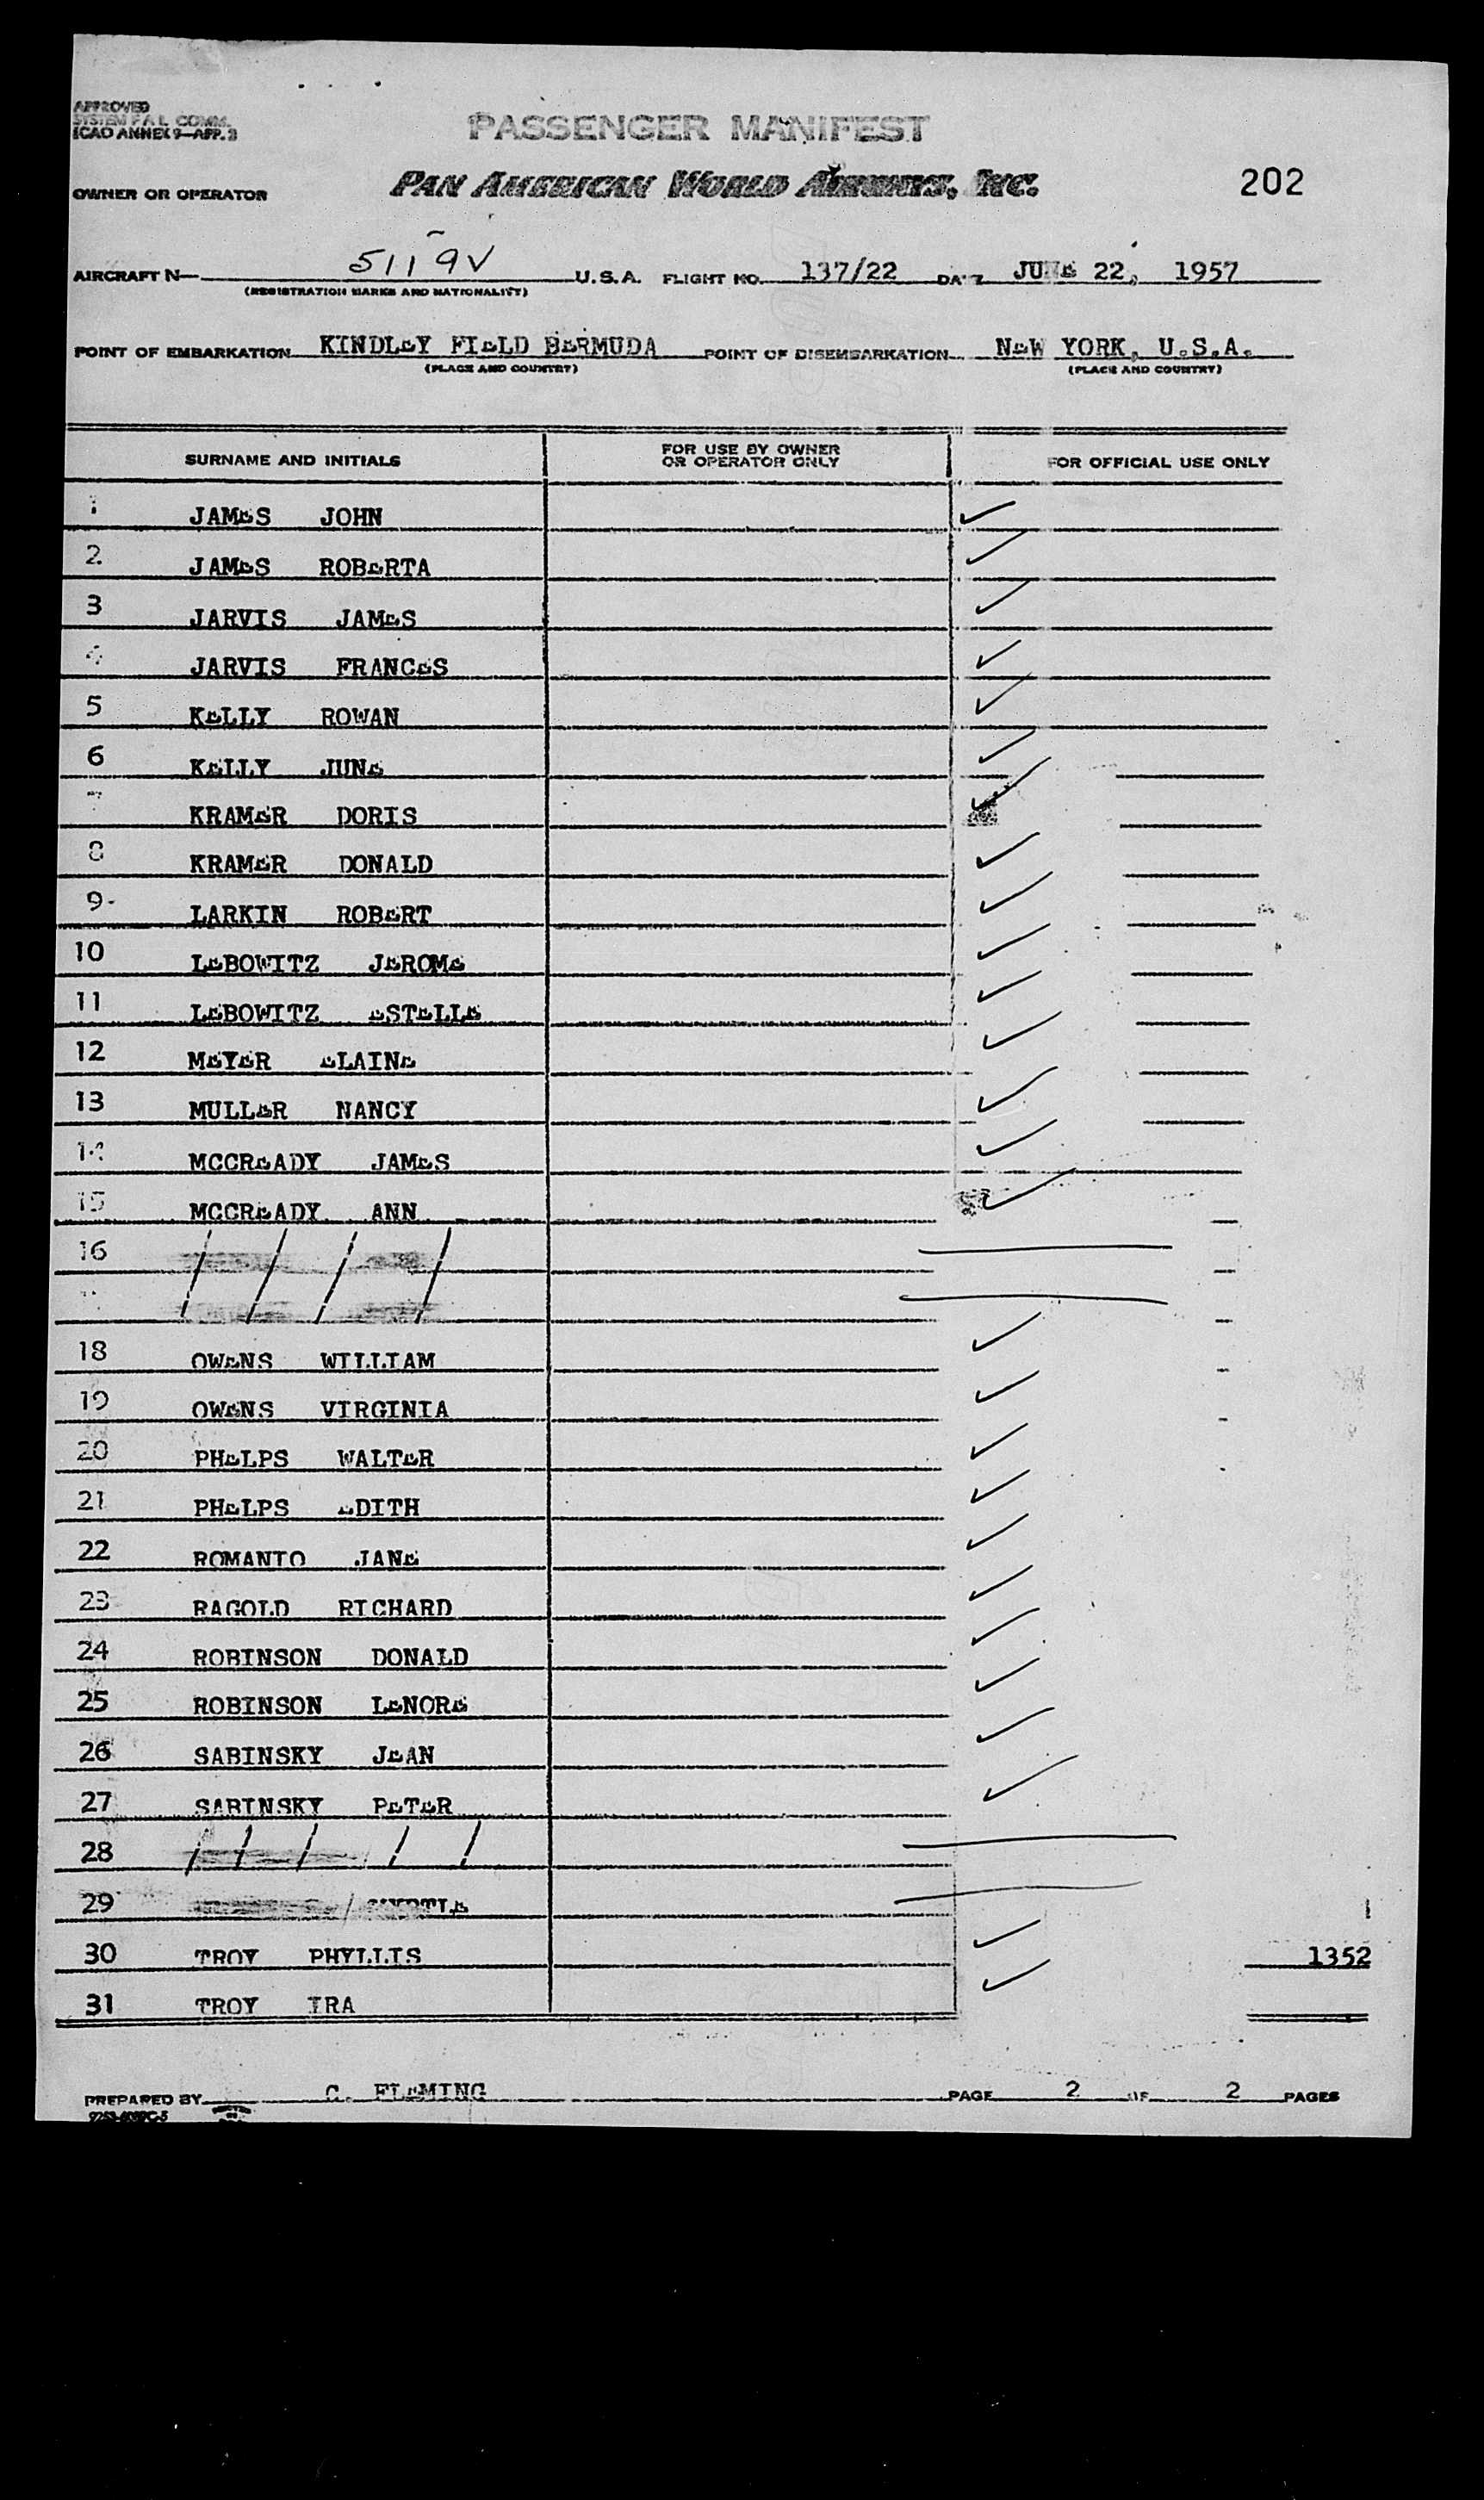 APPROVED
SYSTEM F.A.L. COMM.
ICAO ANNEX 9—APP. 3
PASSENGER MANIFEST
OWNER OR OPERATOR PAN AMERICAN WORLD AIRWAYS, INC. 202
AIRCRAFT N— 5119V U.S.A. FLIGHT NO. 137/22 DATE JUNE 22, 1957
(REGISTRATION MARKS AND NATIONALITY)
POINT OF EMBARKATION KINDLEY FIELD BERMUDA POINT OF DISEMBARKATION NEW YORK, U.S.A.
(PLACE AND COUNTRY) (PLACE AND COUNTRY)
SURNAME AND INITIALS FOR USE BY OWNER OR OPERATOR ONLY FOR OFFICIAL USE ONLY
1 JAMES JOHN ✓
2 JAMES ROBERTA ✓
3 JARVIS JAMES ✓
4 JARVIS FRANCES ✓
5 KELLY ROWAN ✓
6 KELLY JUNE ✓
7 KRAMER DORIS ✓
8 KRAMER DONALD ✓
9 LARKIN ROBERT ✓
10 LEBOWITZ JEROME ✓
11 LEBOWITZ ESTELLE ✓
12 MEYER ELAINE ✓
13 MULLER NANCY ✓
14 MCCREADY JAMES ✓
15 MCCREADY ANN ✓
16
18 OWENS WILLIAM ✓
19 OWENS VIRGINIA ✓
20 PHELPS WALTER ✓
21 PHELPS EDITH ✓
22 ROMANTO JANE ✓
23 RAGOLD RICHARD ✓
24 ROBINSON DONALD ✓
25 ROBINSON LENORE ✓
26 SABINSKY JEAN ✓
27 SABINSKY PETER ✓
28
29
30 TROY PHYLLIS ✓ 1352
31 TROY IRA ✓
PREPARED BY C. FLEMING PAGE 2 OF 2 PAGES